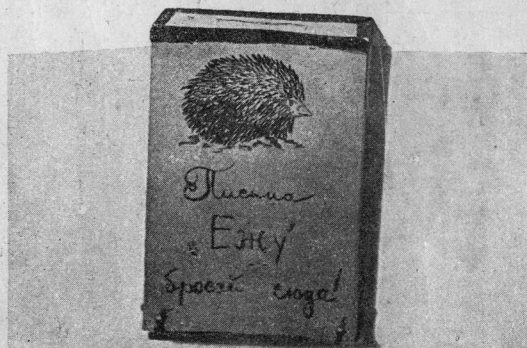 Письма
„Ежу"
бросай сюда!